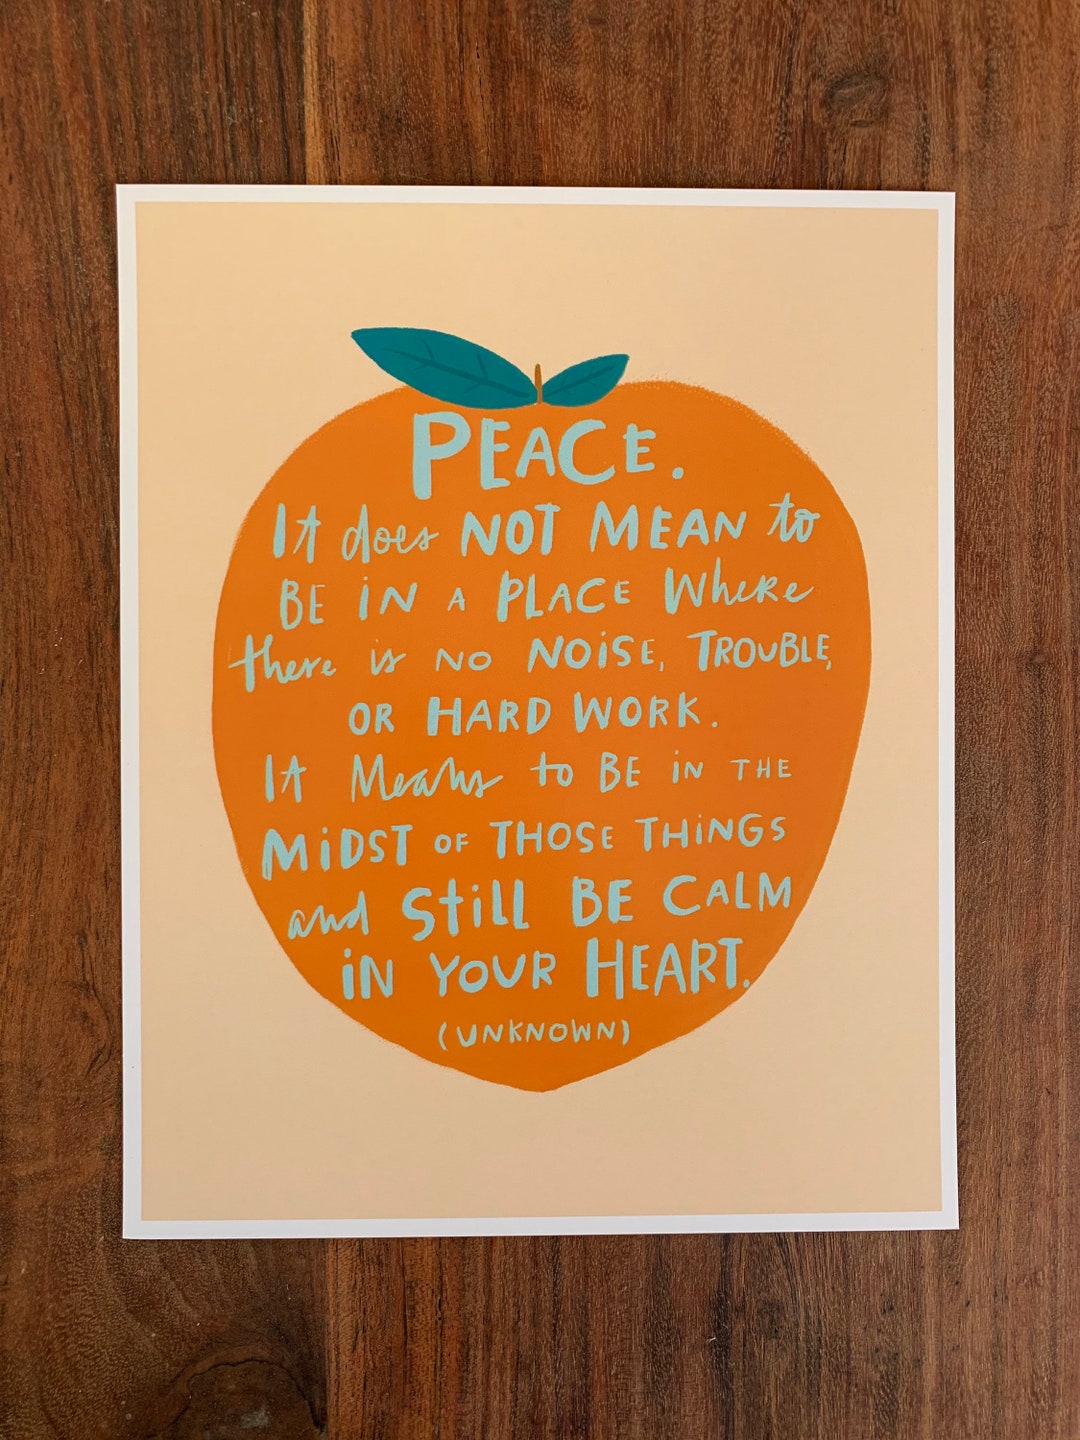 PEACE.
It does NOT MEAN to
BE iN A PLACE Where
there is NO NOiSE, TROUBLE,
OR HARD WORK.
It Means to BE iN THE
MiDST OF THOSE THiNGS
and Still BE CALM
iN YOUR HEART.
(UNKNOWN)